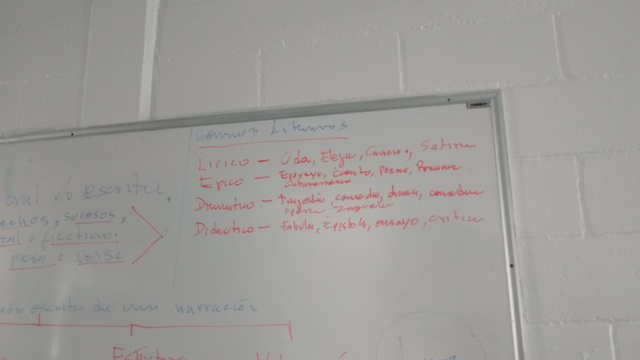 Géneros Literarios
Lírico - Oda, Elegía, Canción, Sátira
Épico - Epopeya, Cuento, Poema, Romance
Dramático - Tragedia, comedia, drama,
ópera, Zarzuela
Didáctico - fábula, Epístola, ensayo, crítica
oral y/o escrita,
hechos, sucesos,
real o ficticios
prosa o verso
escrita de una narración